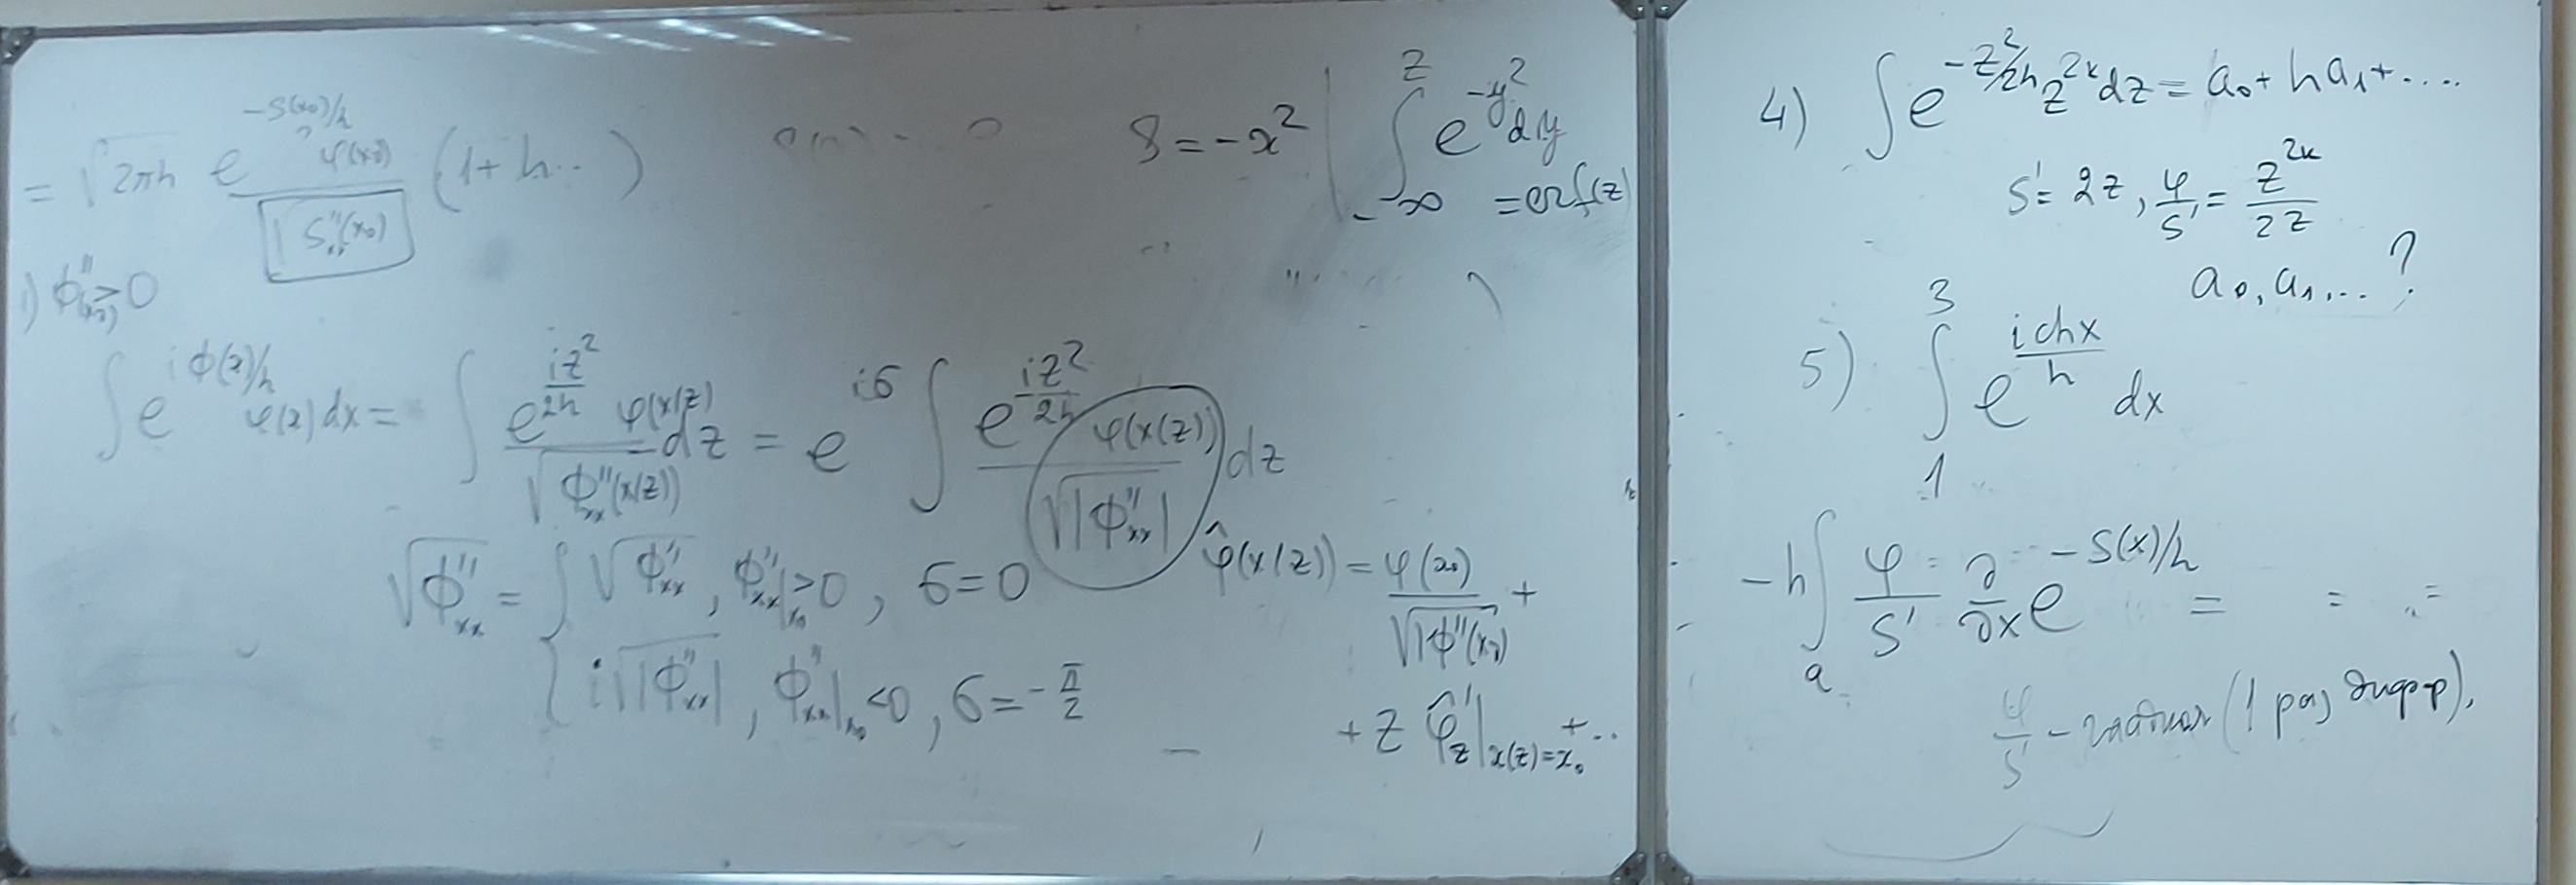 = √2πh e^{-S(x₀)/h} φ(x₀) / √S''ₓₓ(x₀) (1 + h ...)
S = -x² | ∫_{-∞}^{z} e^{-y²} dy = erf(z)
1) ϕ''(x₀) > 0
∫ e^{iϕ(x)/h} φ(x) dx = ∫ e^{iz²/2h} φ(x(z)) / √ϕ''ₓₓ(x(z)) dz = e^{iσ} ∫ e^{iz²/2h} φ(x(z)) / √|ϕ''ₓₓ| dz
√ϕ''ₓₓ = { √ϕ''ₓₓ , ϕ''ₓₓ|ₓ₀ > 0 , σ = 0
i√|ϕ''ₓₓ| , ϕ''ₓₓ|ₓ₀ < 0 , σ = -π/2
φ̂(x(z)) = φ(x₀) / √|ϕ''(x₀)| +
+ z φ̂'_z|_{x(z)=x₀} + ..
4) ∫ e^{-z²/2h} z^{2k} dz = a₀ + h a₁ + ....
S' = 2z , φ/S' = z^{2k} / 2z
a₀, a₁, ... ?
5) ∫_1^3 e^{i ch x / h} dx
-h ∫_a φ/S' ∂/∂x e^{-S(x)/h} = = =
φ/S' - гладкая (1 раз дифф-р).